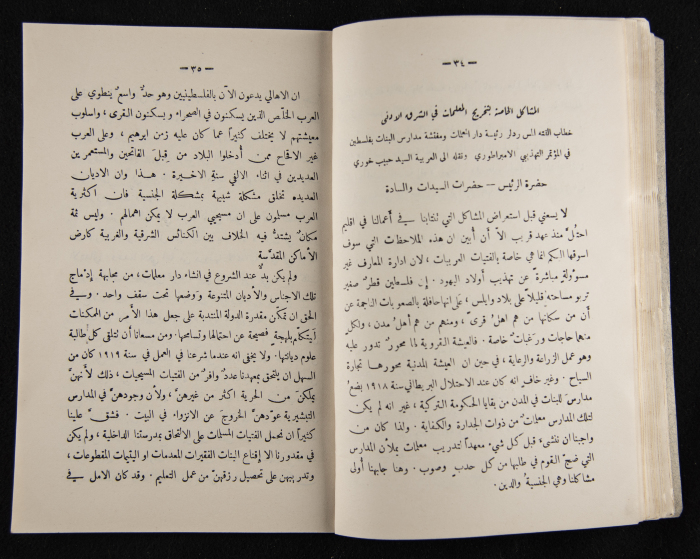 — ٣٤ —
المشاكل الخاصة بتخريج المعلمات في الشرق الادنى
خطاب القته المس ردلر رئيسة دار المعلمات ومفتشة مدارس البنات بفلسطين
في المؤتمر التهذيبي الامبراطوري ونقله الى العربية السيد حبيب خوري
حضرة الرئيس — حضرات السيدات والسادة
لا يسعني قبل استعراض المشاكل التي تنتابنا في أعمالنا في اقليم
احتُلَّ منذ عهد قريب الّا أن أبين ان هذه الملاحظات التي سوف
اسوقها اليكم انما هي خاصة بالفتيات العربيات ، لان ادارة المعارف غير
مسؤولة مباشرةً عن تهذيب أولاد اليهود . إن فلسطين قطرٌ صغير
تربو مساحته قليلاً على بلاد وايلس ، على انها حافلة بالصعوبات الناجمة عن
أن من سكانها من هم اهلُ قرىً ، ومنهم من هم أهلُ مدن ، ولكلٍ
منهما حاجات ورغبات خاصة . فالعيشة القروية لها محورٌ تدور عليه
وهو عمل الزراعة والرعاية ، في حين ان العيشة المدنية محورها تجارة
السياح . وغير خافٍ انه كان عند الاحتلال البريطاني سنة ١٩١٨ بضعُ
مدارسَ للبنات في المدن من بقايا الحكومة التركية ، غير انه لم يكن
لتلك المدارس معلماتٌ من ذوات الجدارة والكفاية . ولذا كان من
واجبنا ان ننشىء قبل كل شيء معهداً لتدريب معلمات يملأن المدارس
التي ضجّ القوم في طلبها من كل حدبٍ وصوب . وهنا جابهنا أولى
مشاكلنا وهي الجنسية والدين .
— ٣٥ —
ان الاهالي يدعون الآن بالفلسطينيين وهو حدٌّ واسعٌ ينطوي على
العرب الخلّص الذين يسكنون في الصحراء ويسكنون القرى ، واسلوب
معيشتهم لا يختلف كثيراً عما كان عليه زمن ابرهيم ، وعلى العرب
غير الاقحاح ممن أدخلوا البلاد من قِبل الفاتحين والمستعمرين
العديدين في اثناء الالفي سنةٍ الاخيرة . هذا وان الاديان
العديده تخلق مشكلة شبيهة بمشكلة الجنسية فان اكثرية
العرب مسلمون على ان مسيحيي العرب لا يمكن اهمالهم . وليس ثمة
مكانٌ يشتدُّ فيه الخلاف بين الكنائس الشرقية والغربية كارض
الأماكن المقدَّسة
ولم يكن بدٌّ عند الشروع في انشاء دار معلمات ، من مجابهة إدماج
تلك الاجناس والأديان المتنوعة ووضعها تحت سقف واحد . وفي
الحق ان تمكن مقدرة الدولة المنتدبة على جعل هذا الأمر من الممكنات
ليتكلّم بلهجة فصيحة عن احتمالها وتسامحها . ومن مسعانا أن تتلقى كل طالبة
علوم ديانتها . ولا يخفى انه عندما شرعنا في العمل في سنة ١٩١٩ كان من
السهل ان يلتحق بمعهدنا عددٌ وافرٌ من الفتيات المسيحيات ، ذلك لأنهنَّ
يملكن من الحرية اكثر من غيرهنَّ ، ولأن وجودهنَّ في المدارس
التبشيرية عوّدهنَّ الخروج عن الانزواء في البيت . فشقَّ علينا
كثيراً ان نحمل الفتيات المسلمات على الالتحاق بمدرستنا الداخلية ، ولم يكن
في مقدورنا الا إقناع البنات الفقيرات المعدمات او اليتيمات المقطوعات ،
وتدريبهن على تحصيل رزقهنَّ من عمل التعليم . وقد كان الامل في